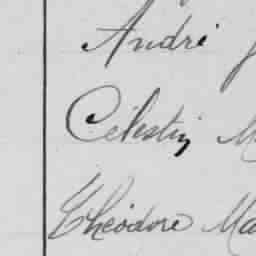 André
Célestin M
Théodore Ma